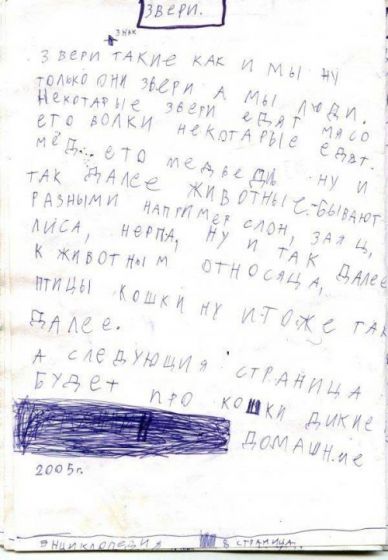 ЗВЕРИ.
ЗНАК
ЗВЕРИ ТАКИЕ КАК И МЫ НУ
ТОЛЬКО ОНИ ЗВЕРИ А МЫ ЛЮДИ.
НЕКОТАРЫЕ ЗВЕРИ ЕДЯТ МЯСО
ЕТО ВОЛКИ НЕКОТАРЫЕ ЕДЯТ.
МЁД... ЕТО МЕДВЕДЬ НУ И
ТАК ДАЛЕЕ ЖИВОТНЫЕ. БЫВАЮТ
РАЗНЫМИ НАПРИМЕР СЛОН, ЗАЯЦ,
ЛИСА, НЕРПА, НУ И ТАК ДАЛЕЕ
К ЖИВОТНЫМ ОТНОСЯЦА,
ПТИЦЫ КОШКИ НУ И ТОЖЕ ТАК
ДАЛЕЕ.
А СЛЕДУЮЩИЯ СТРАНИЦА
БУДЕТ ПРО КОШКИ ДИКИЕ
ДОМАШНИЕ
2005г.
ЭНЦИКЛОПЕДИЯ В СТРАНИЦА